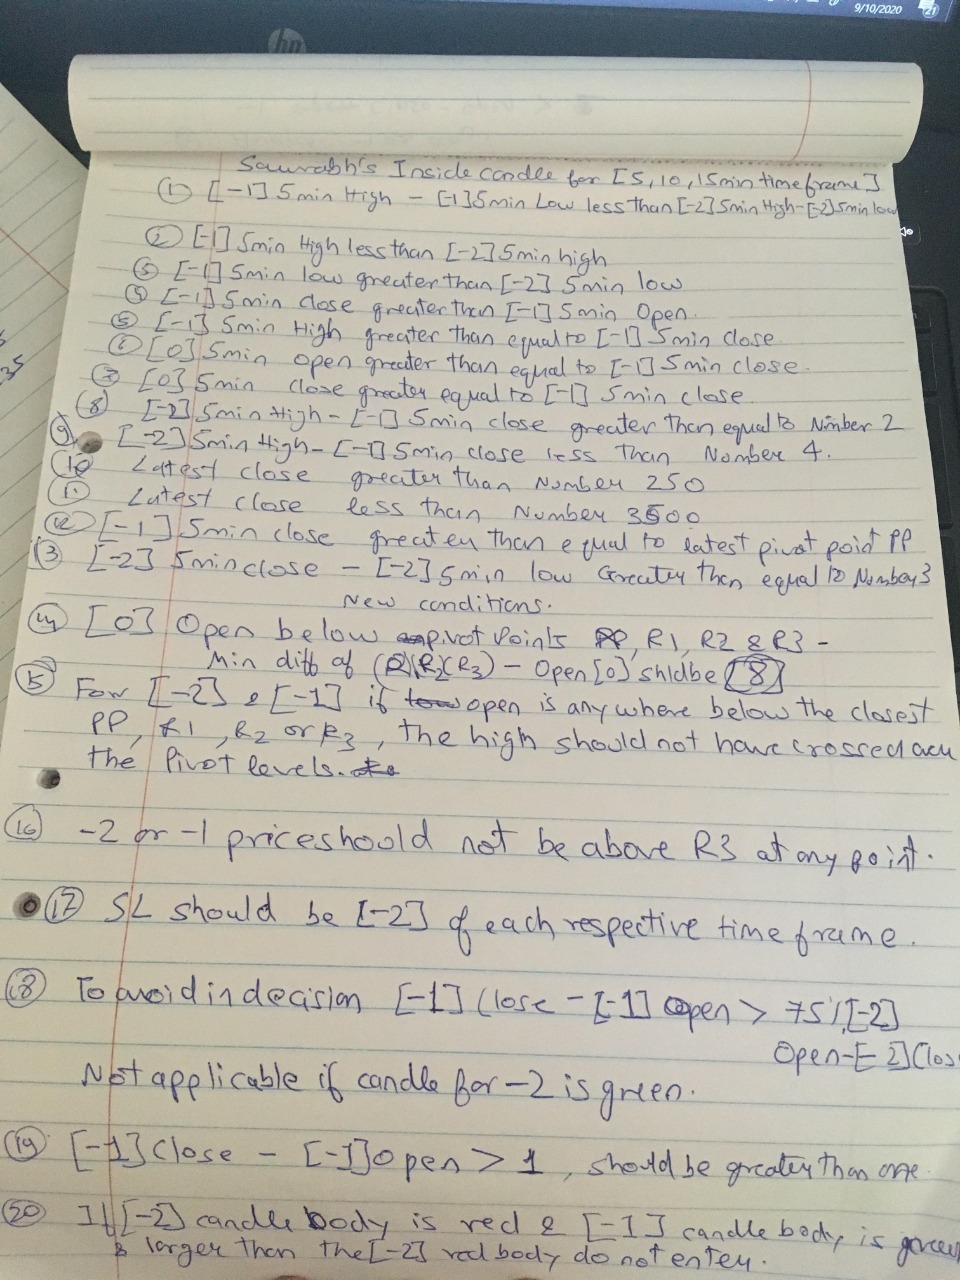 9/10/2020
21
hp
Saurabh's Inside candle for [5, 10, 15min timeframe]
① [-1] 5min High - [-1]5min Low less than [-2] 5min High-[-2]5min low
② [-1] 5min High less than [-2] 5min high
③ [-1] 5min low greater than [-2] 5min low
④ [-1] 5min close greater than [-1] 5min Open.
⑤ [-1] 5min High greater than equal to [-1] 5min close.
⑥ [0] 5min open greater than equal to [-1] 5min close.
⑦ [0] 5min close greater equal to [-1] 5min close.
⑧ [-2] 5min High - [-1] 5min close greater then equal to Number 2
⑨ [-2] 5min High - [-1] 5min close less than Number 4.
⑩ Latest close greater than Number 250
⑪ Latest close less than Number 3500
⑫ [-1] 5min close greater than equal to latest pivot point PP
⑬ [-2] 5min close - [-2] 5min low Greater then equal to Number 3
New conditions.
⑭ [0] Open below pivot points PP, R1, R2 & R3 -
Min diff of (R2)(R3) - Open [0] shldbe 8
⑮ For [-2] & [-1] if open is anywhere below the closest
PP, R1, R2 or R3, the high should not have crossed
the Pivot levels.
⑯ -2 or -1 price should not be above R3 at any point.
⑰ SL should be [-2] of each respective time frame.
⑱ To avoid indecision [-1] Close - [-1] open > 75% [-2]
Open-[-2] Clos
Not applicable if candle for -2 is green.
⑲ [-1] Close - [-1] open > 1, should be greater than one.
⑳ If [-2] candle body is red & [-1] candle body is green
& larger than the [-2] red body do not enter.
35